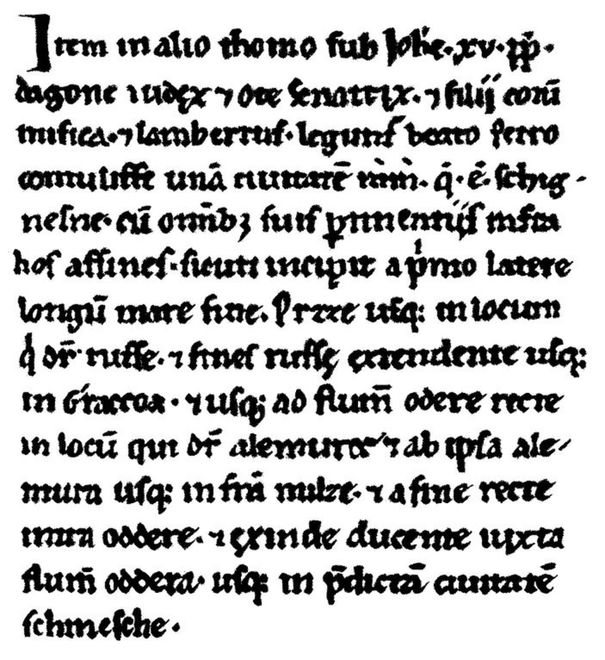 Item in alio thomo sub Johe. xv. pp̄.
dagone iudęx ⁊ ote senatrix. ⁊ filij eorū
misica. ⁊ lambertus. legunt᷑ beato petro
contulisse unā ciuitatē in int̄. q̄. ē. schig-
nesne. cū omībꝫ suis ꝑtinentijs infra
hos affines. sicuti incipit a pͥmo latere
longū mare fine. Pruzze usq: in locum
qͥ dr̄ russe. ⁊ fines russę extendente usq:
in Craccoa. ⁊ usq; ad flum̄ odere recte
in locū qui dr̄ alemure ⁊ ab ipsa ale/
mura usq: in frā milze. ⁊ a fine recte
intra oddere. ⁊ exinde ducente iuxta
flum̄ oddera. usq: in p̄dictā ciuitatē
schinesche.